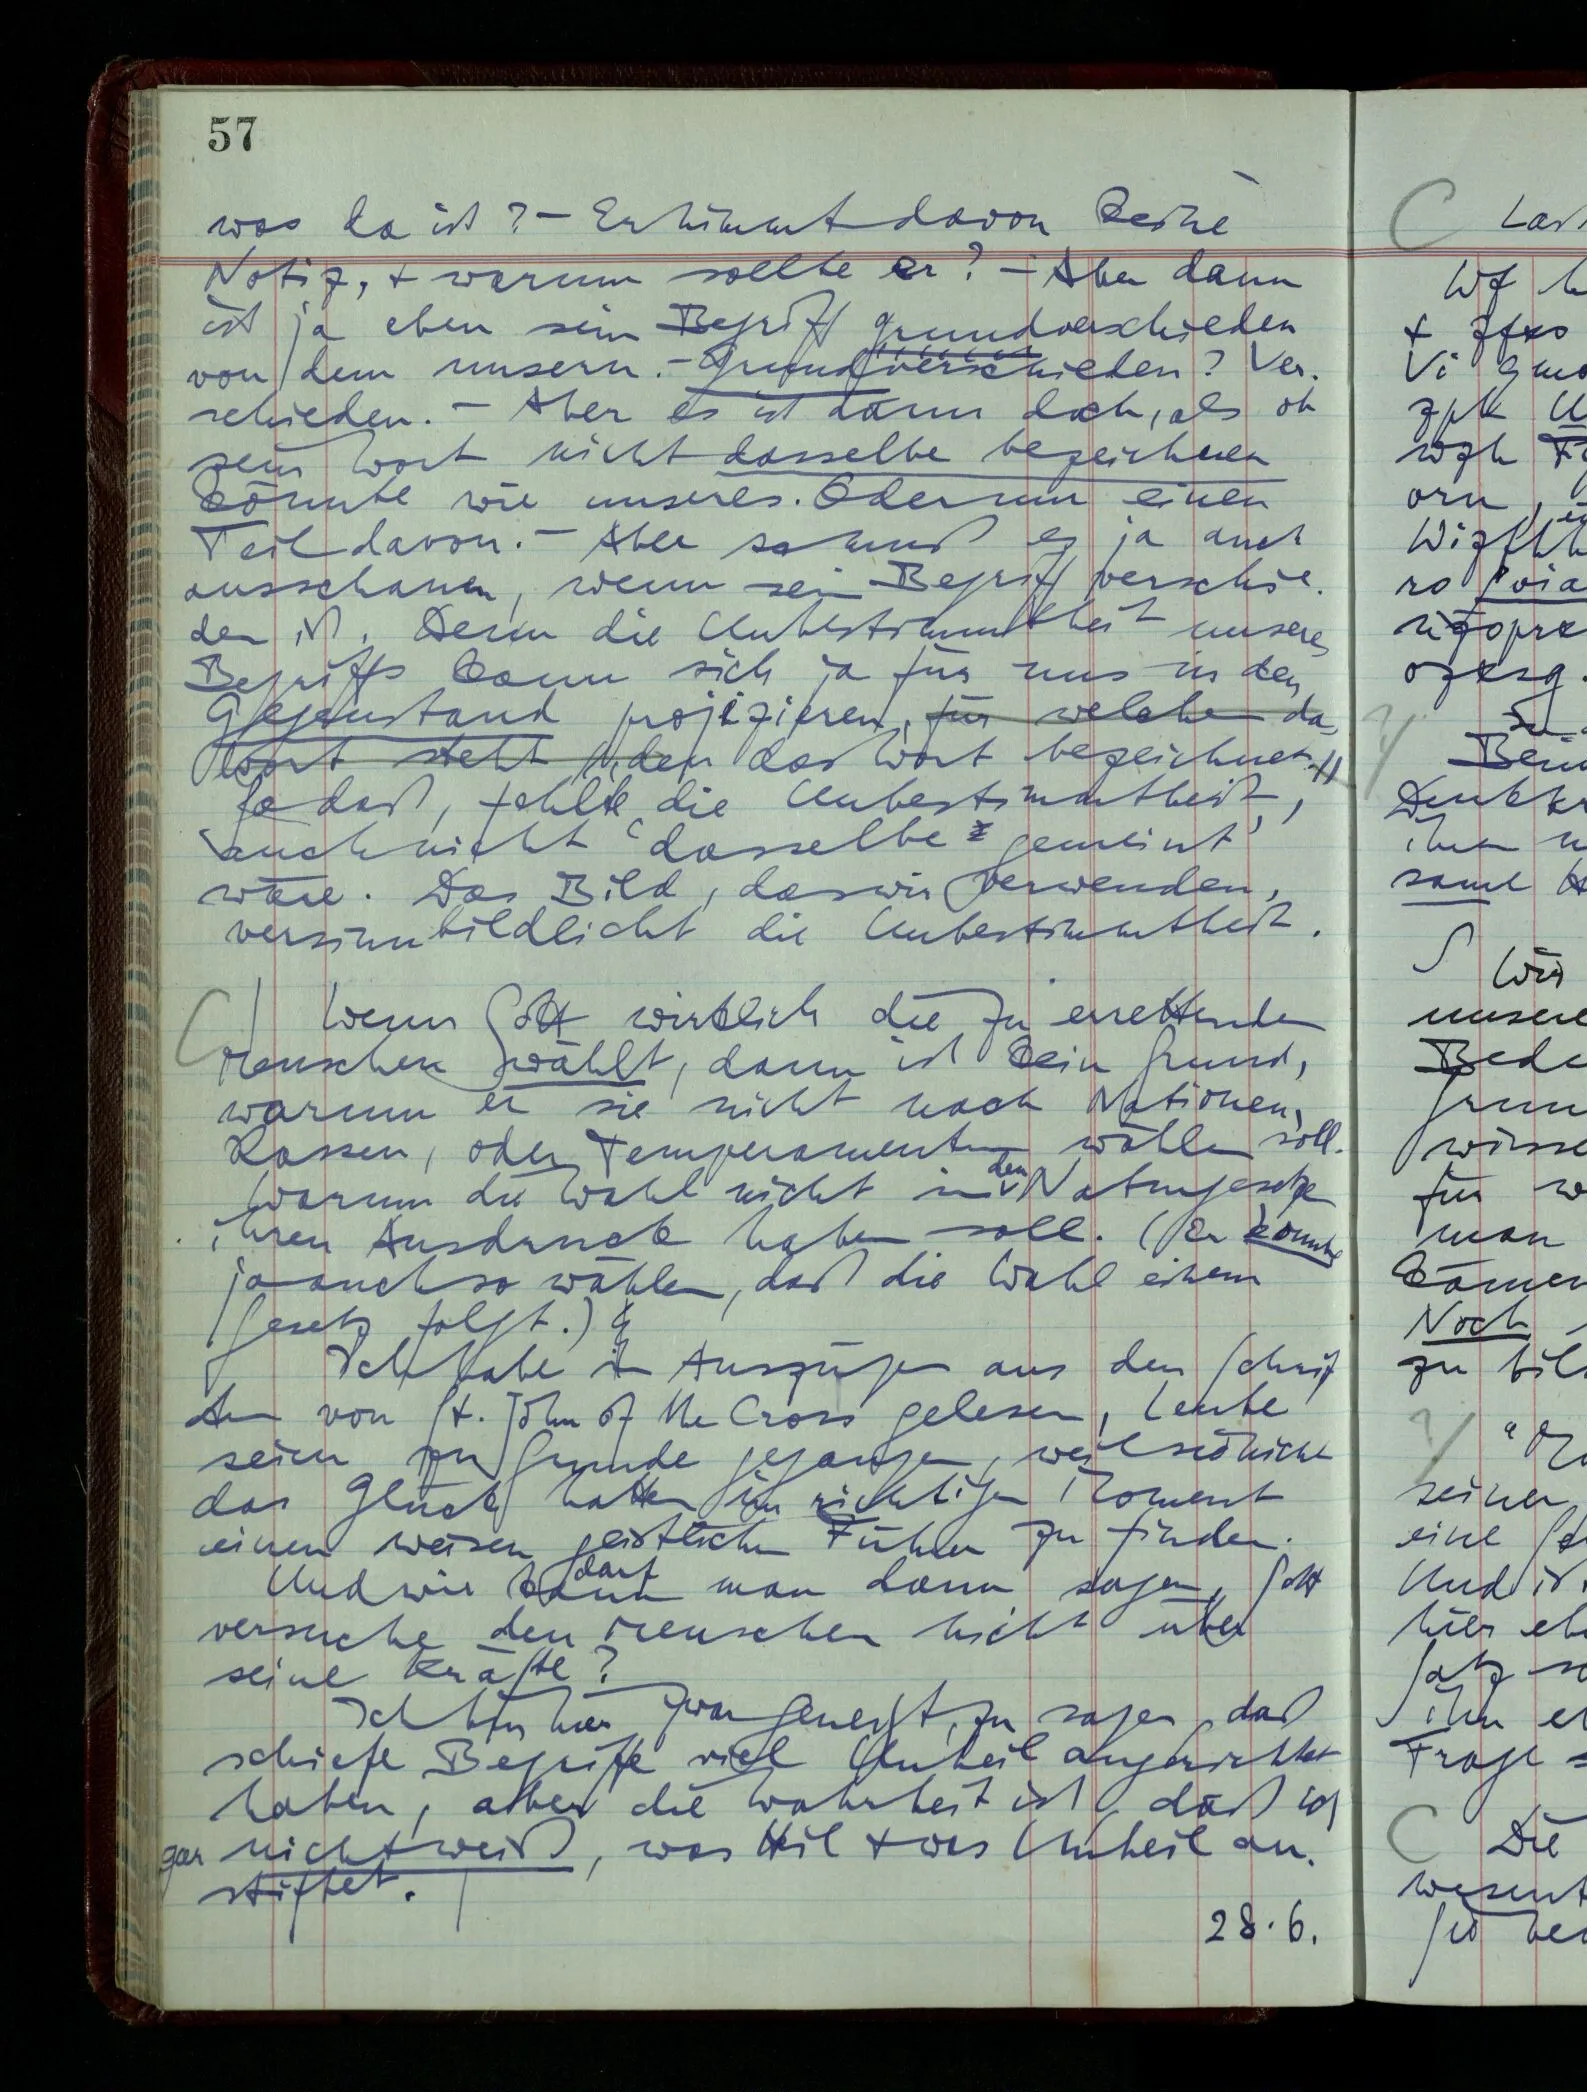 57
was da ist? – Er nimmt davon keine
Notiz, + warum sollte er? – Aber dann
ist ja eben sein Begriff grundverschieden
von dem unsern. – Grundverschieden? Ver-
schieden. – Aber es ist dann doch, als ob
sein Wort nicht dasselbe bezeichnen
könnte wie unseres. Oder nur einen
Teil davon. – Aber so muß es ja auch
ausschauen, wenn sein Begriff verschie-
den ist. Denn die Unbestimmtheit unseres
Begriffs kann sich ja für uns in den
Gegenstand projizieren, für welchen das
Wort steht, den das Wort bezeichnet. //
So daß, fehlte die Unbestimmtheit,
auch nicht ‘dasselbe gemeint’
wäre. Das Bild, das wir verwenden,
versinnbildlicht die Unbestimmtheit.
C | Wenn Gott wirklich die zu errettenden
Menschen wählt, dann ist kein Grund,
warum er sie nicht nach Nationen,
Rassen, oder Temperamenten wählen soll.
Warum die Wahl nicht in den Naturgesetzen
ihren Ausdruck haben soll. (Er konnte
ja auch so wählen, daß die Wahl einem
Gesetz folgt.)
Ich habe in Auszüge aus den Schrif
ten von St. John of the Cross gelesen, Leute
seien zu Grunde gegangen, weil sie nicht
das Glück hatten im richtigen Moment
einen weisen geistlichen Führer zu finden.
Und wie kann darf man dann sagen, Gott
versuche den Menschen nicht über
seine Kräfte?
Ich bin hier zwar geneigt, zu sagen, daß
schiefe Begriffe viel Unheil angerichtet
haben, aber die Wahrheit ist, daß ich
gar nicht weiß, was Heil + was Unheil an-
stiftet. |
28.6.
C
+
Vi
orn
ro
S Wir
unsere
für
man
Noch
zu
seiner
eine
Und
hier
Frage
C Die